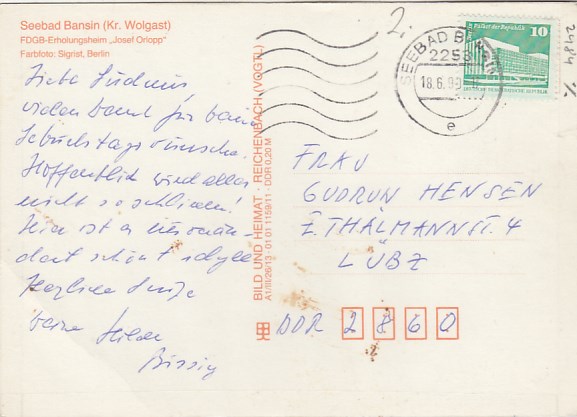 Seebad Bansin (Kr. Wolgast)
FDGB-Erholungsheim „Josef Orlopp"
Farbfoto: Sigrist, Berlin
Liebe Gudrun,
vielen Dank für Deine
Geburtstagswünsche.
Hoffentlich wird alles
nicht so schlimm!
Hier ist es
dort schön
Herzliche Grüße
Deine
BILD UND HEIMAT · REICHENBACH (VOGTL)
A1/III/26/13 · 01 01 1159/11 · DDR 0,20 M
2.
SEEBAD BANSIN
2253
18.6.90
e
Palast der Republik
10
2484
FRAU
GUDRUN HENSEN
E. THÄLMANNST. 4
LÜBZ
DDR 2860